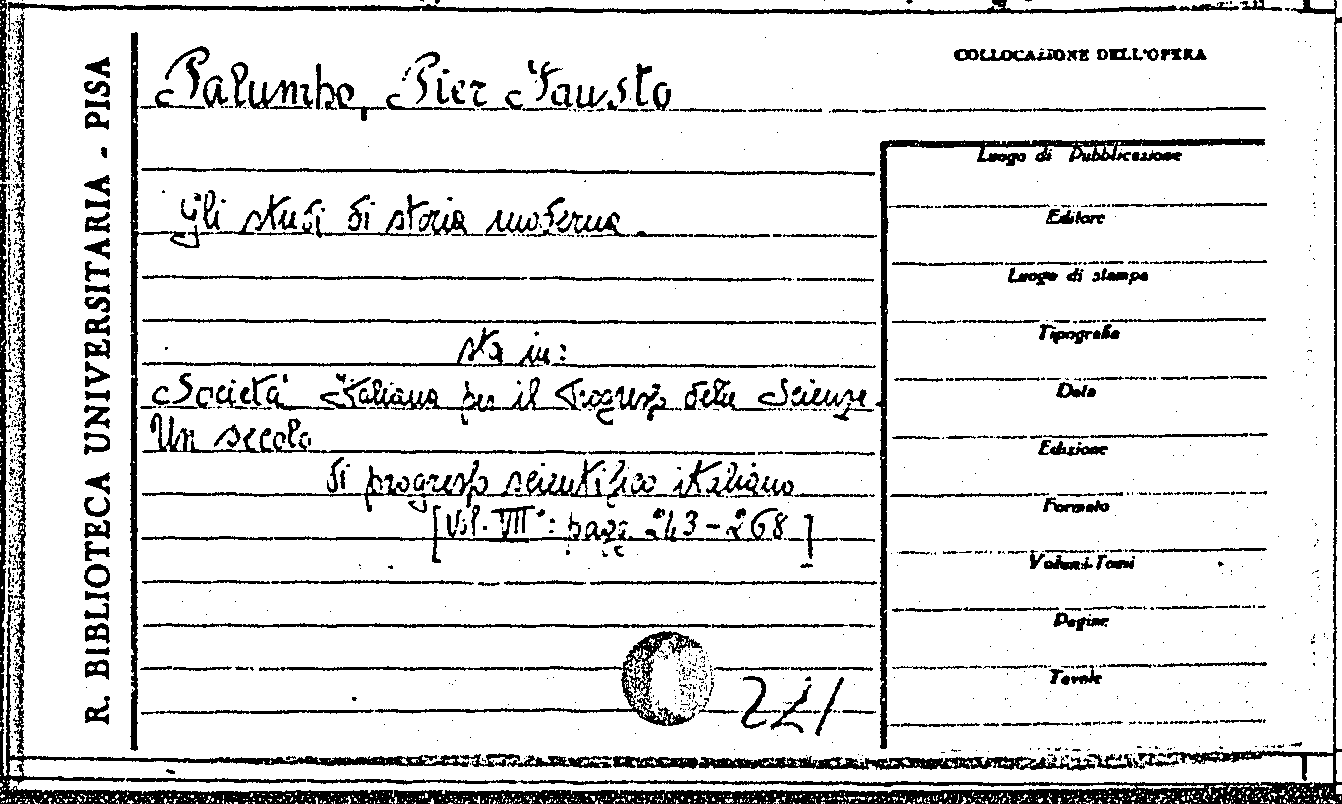 R. BIBLIOTECA UNIVERSITARIA - PISA
Palumbo, Pier Fausto
COLLOCAZIONE DELL'OPERA
Gli studi di storia moderna.
sta in:
Società Italiana per il Progresso delle Scienze.
Un secolo
di progresso scientifico italiano
[Vol. VII°: pagg. 243-268]
Luogo di Pubblicazione
Editore
Luogo di stampa
Tipografia
Data
Edizione
Formato
Volumi-Tomi
Pagine
Tavole